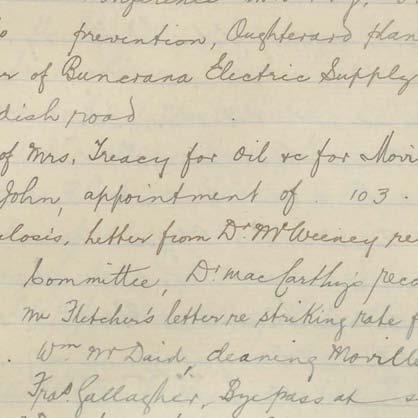 prevention, Oughterard plan
of Buncrana Electric Supply
dish road
of Mrs. Treacy for Oil &c for Movi
John, appointment of . 103 .
ulosis, Letter from Dr. McWeeney re
Committee, Dr. MacCarthy's reco
Mr Fletcher's letter re striking rate f
Wm McDaid, cleaning Moville
Fras. Gallagher, Bye pass at s